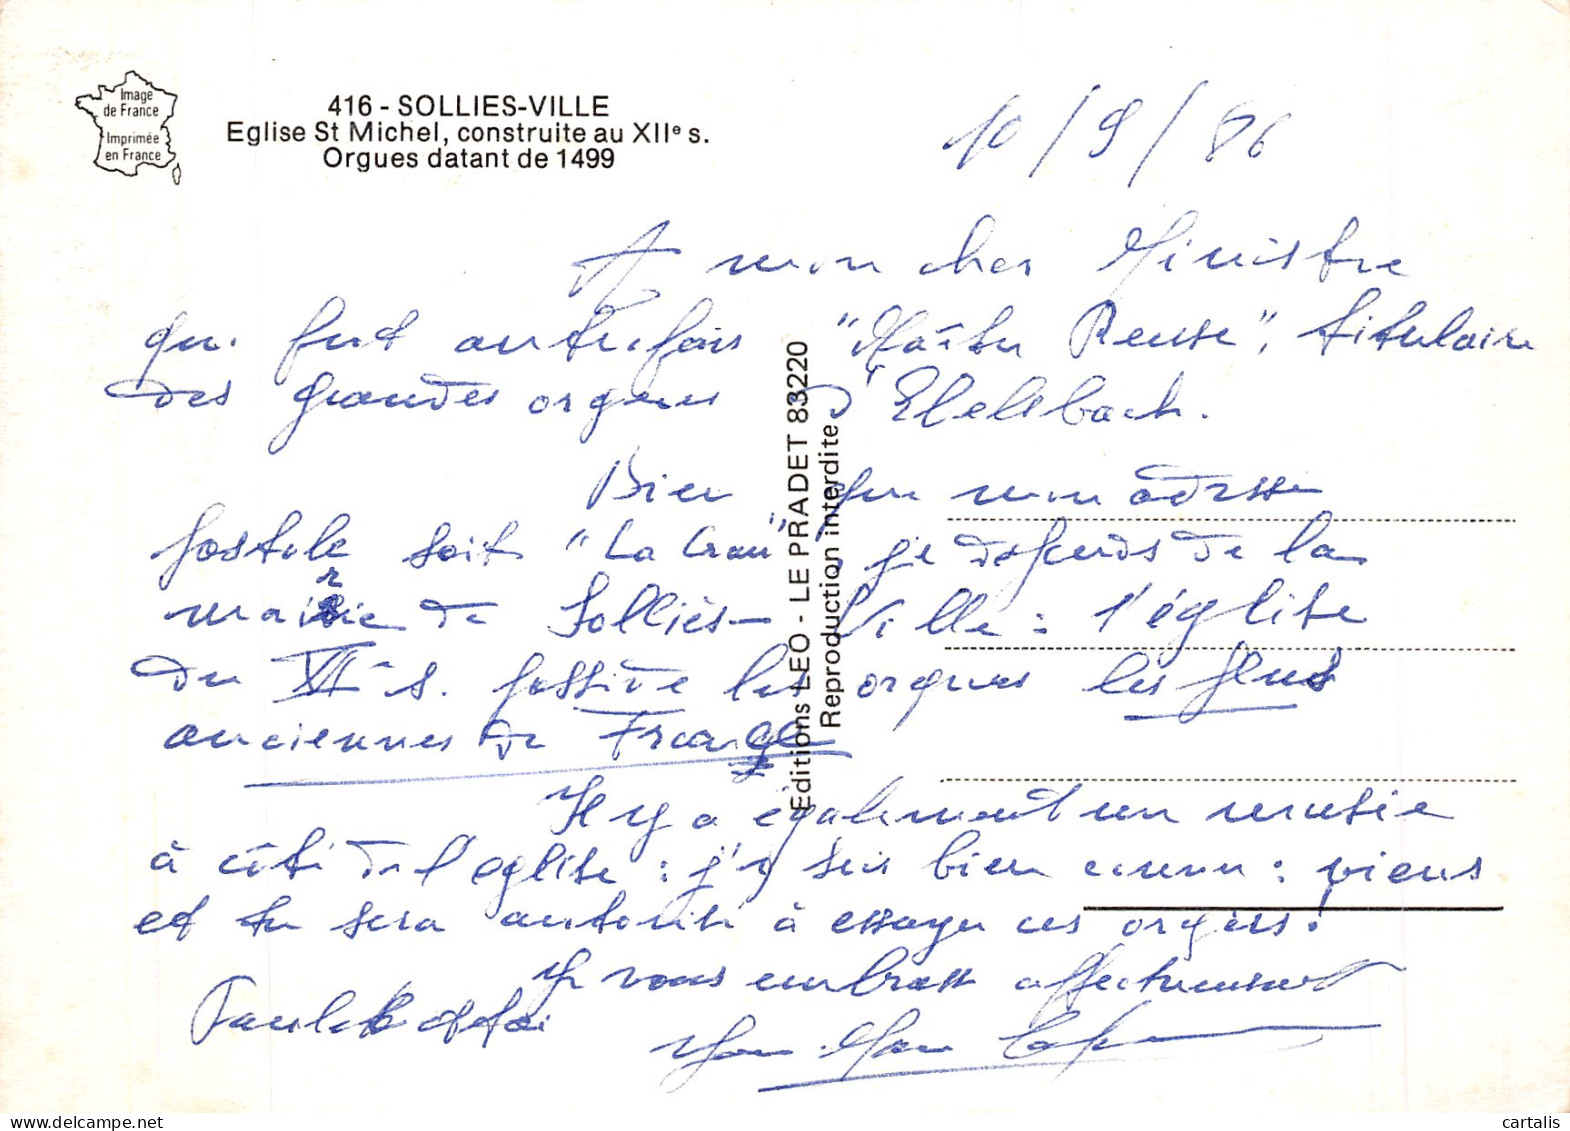 Image
de France
Imprimée
en France
416 - SOLLIES-VILLE
Eglise St Michel, construite au XIIe s.
Orgues datant de 1499
10/9/86
A mon cher Ministre
qui fut autrefois "Maître Reuse", titulaire
des grandes orgues d'
Bien que mon adresse
postale soit "La Crau", je dépends de la
mairie de Solliès-Ville : l'église
du XIIe s. possède les orgues les plus
anciennes de France
Il y a également un musée
à côté de l'église : j'y suis bien connu : viens
et tu sera autorisé à essayer ces orgues !
Je vous embrasse affectueusement
Editions LEO - LE PRADET 83220
Reproduction interdite
cartalis